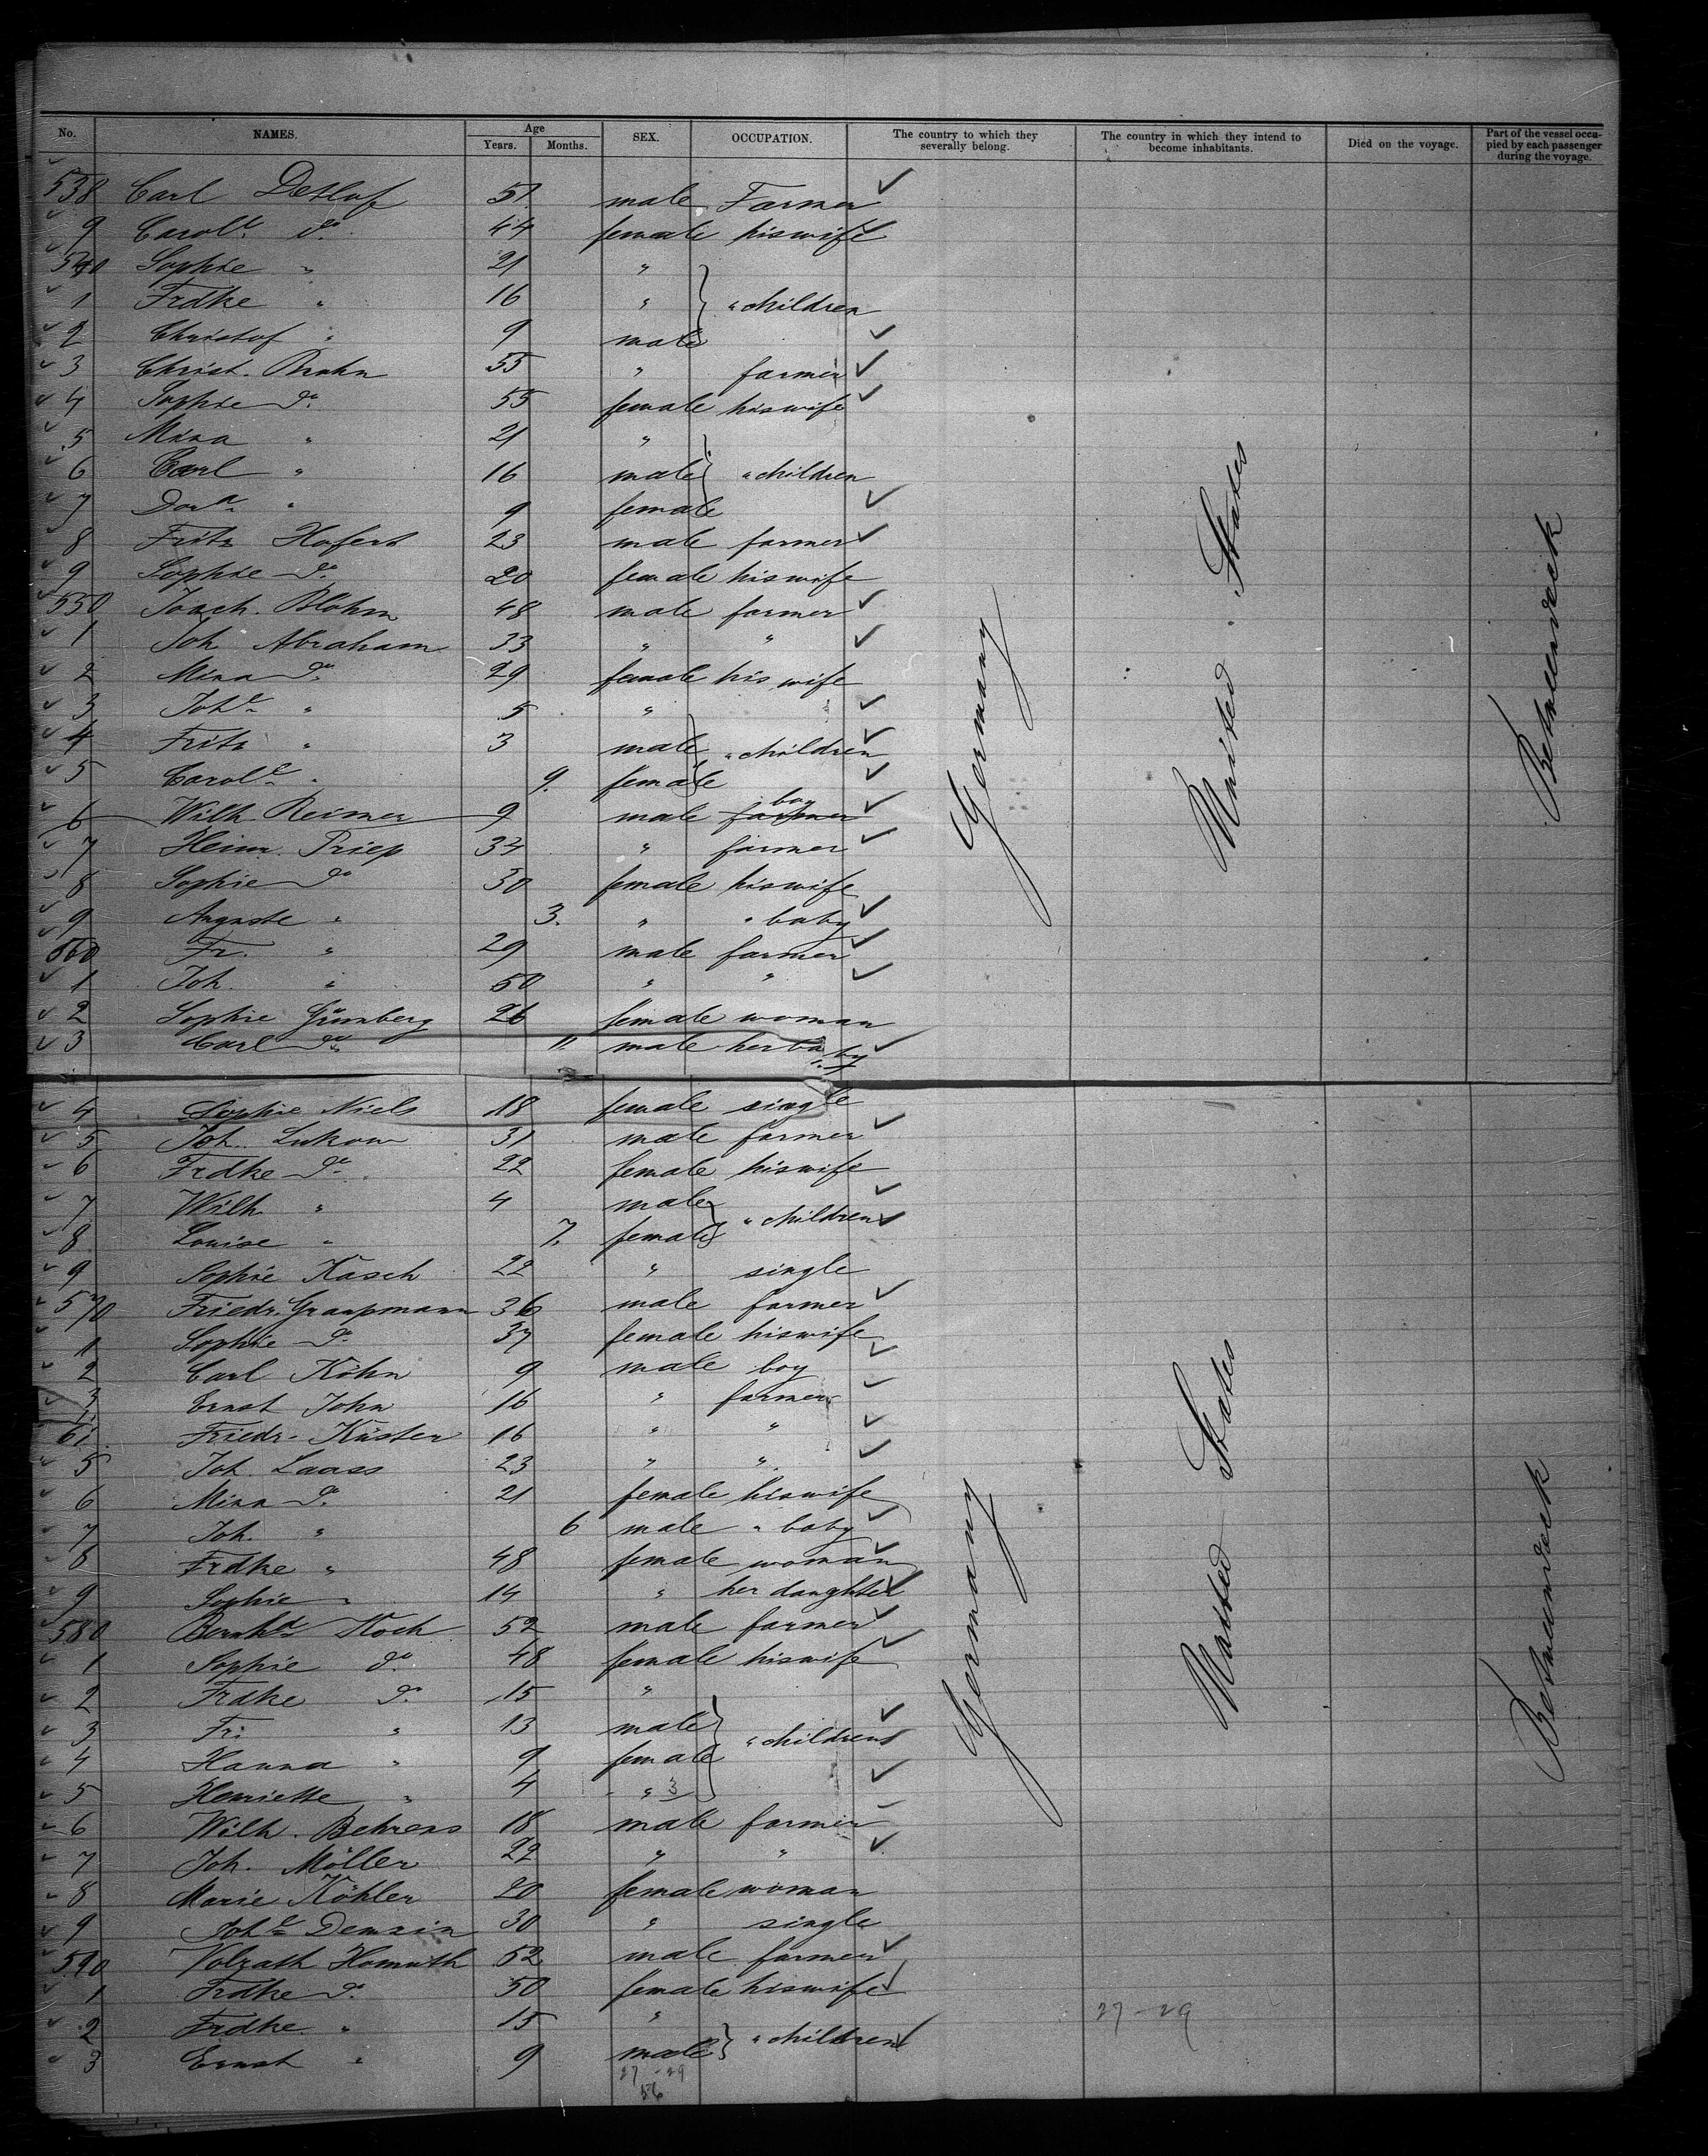 No. NAMES. Age Years. Months. SEX. OCCUPATION. The country to which they severally belong. The country in which they intend to become inhabitants. Died on the voyage. Part of the vessel occupied by each passenger during the voyage.
538 Carl Detlof 51 male Farmer
9 Carole do 44 female his wife
540 Sophie " 21 "
1 Frdke " 16 " " children
2 Christof " 9 male
3 Christ. Brahn 55 " farmer
4 Sophie do 55 female his wife
5 Mina " 21 "
6 Carl " 16 male " children
7 Dora " 9 female
8 Fritz Hofert 23 male farmer
9 Sophie do 20 female his wife
550 Joach. Blohm 48 male farmer
1 Joh Abraham 33 " "
2 Mina do 29 female his wife
3 Johe " 5 "
4 Fritz " 3 male " children
5 Carole " 9. female
6 Wilh. Reimer 9 male farmer boy
7 Heinr. Priep 34 " farmer
8 Sophie do 30 female his wife
9 Auguste " 3. " " baby
560 Fr. " 29 male farmer
1 Joh. " 50 " "
2 Sophie Grünberg 26 female woman
3 Carl do 11. male her baby
4 Sophie Niels 18 female single
5 Joh. Lukow 31 male farmer
6 Frdke do 22 female his wife
7 Wilh " 4 male " children
8 Louise " 7. female
9 Sophie Kasch 22 " single
570 Friedr. Graupmann 36 male farmer
1 Sophie do 37 female his wife
2 Carl Köhn 9 male boy
3 Ernst John 16 " farmer
Friedr. Küster 16 " "
5 Joh. Laass 23 " "
6 Mina do 21 female his wife
7 Joh. " 6 male " baby
8 Frdke " 48 female woman
9 Sophie " 14 " her daughter
580 Bernhd Koch 52 male farmer
1 Sophie do 48 female his wife
2 Frdke do 15 "
3 Fr: " 13 male " children
4 Hanna " 9 female
5 Henriette " 4 " 3
6 Wilh. Behrens 18 male farmer
7 Joh. Möller 22 " "
8 Marie Köhler 20 female woman
9 Johe Demzin 30 " single
590 Volrath Homuth 52 male farmer
1 Frdke do 50 female his wife
2 Frdke " 15 "
3 Ernst " 9 male " children
27-29
56
Germany
United States
Betweendeck
Germany
United States
Betweendeck
27-29